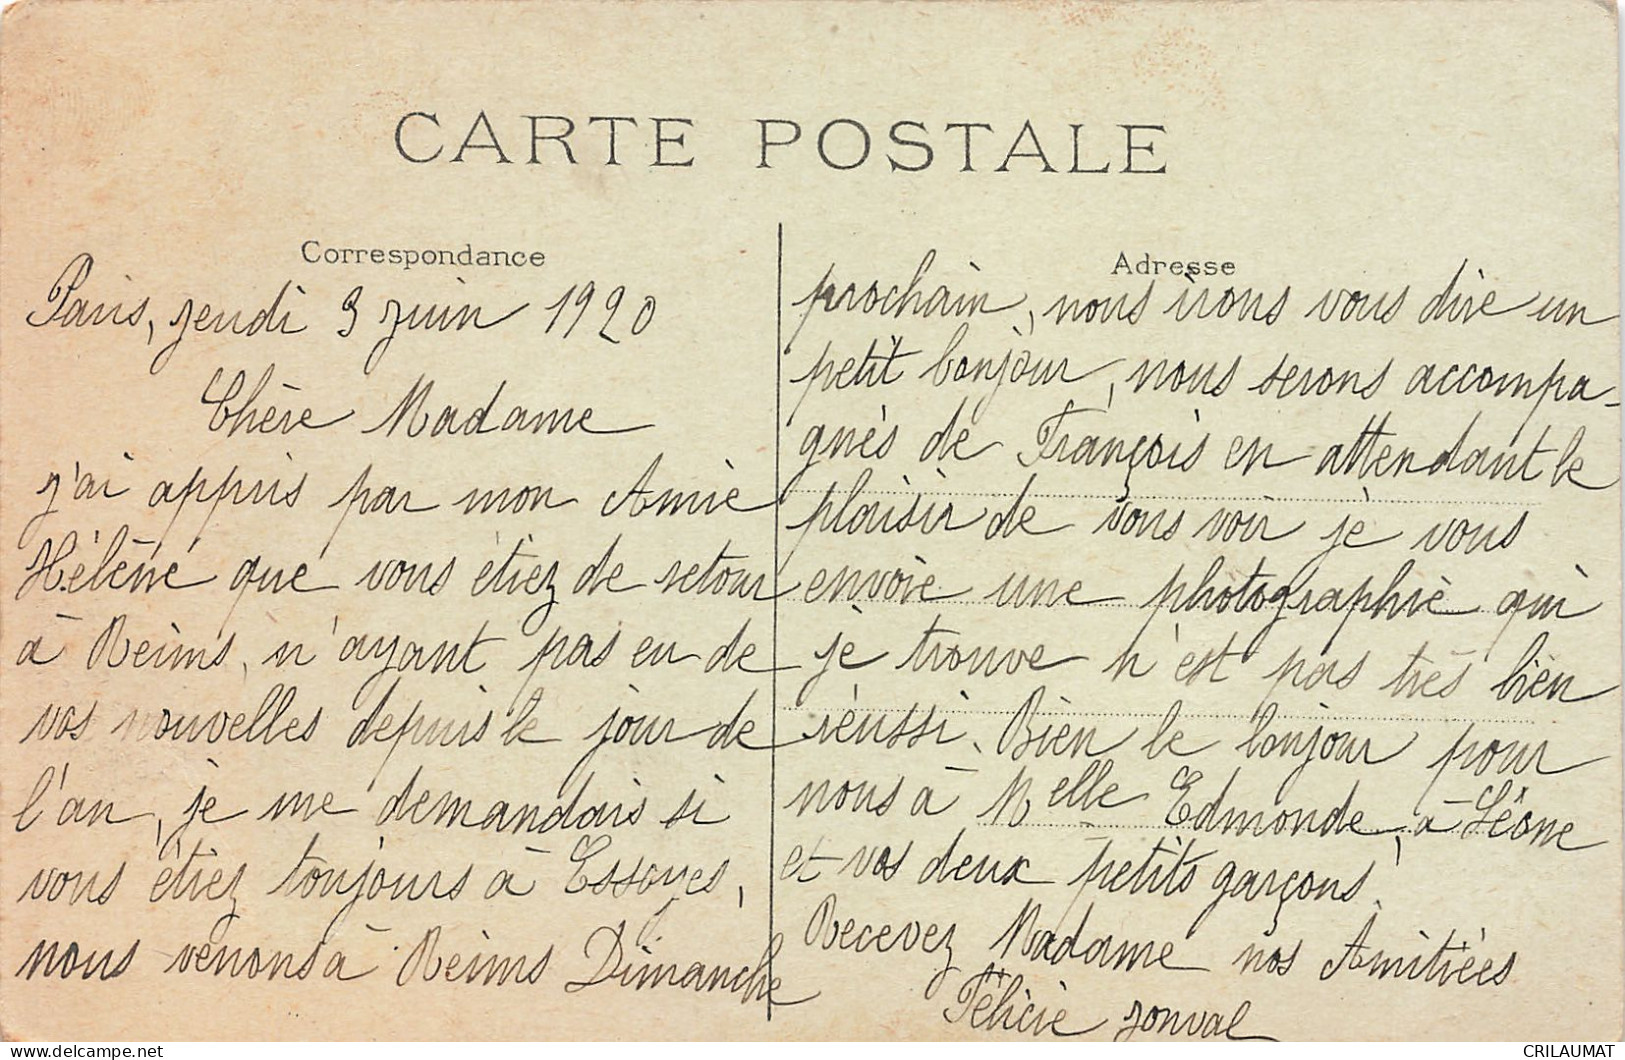 CARTE POSTALE
Correspondance
Paris, jeudi 3 juin 1920
Chère Madame
j'ai appris par mon Amie
Hélène que vous étiez de retour
à Reims, n'ayant pas eu de
vos nouvelles depuis le jour de
l'an, je me demandais si
vous étiez toujours à Essoyes,
nous venons à Reims Dimanche
Adresse
prochain, nous irons vous dire un
petit bonjour, nous serons accompa-
gnés de François en attendant le
plaisir de vous voir je vous
envoie une photographie qui
je trouve n'est pas très bien
réussi. Bien le bonjour pour
nous à Melle Edmonde, à Léone
et vos deux petits garçons.
Recevez Madame nos Amitiées
Félicie Jonval
CRILAUMAT
delcampe.net